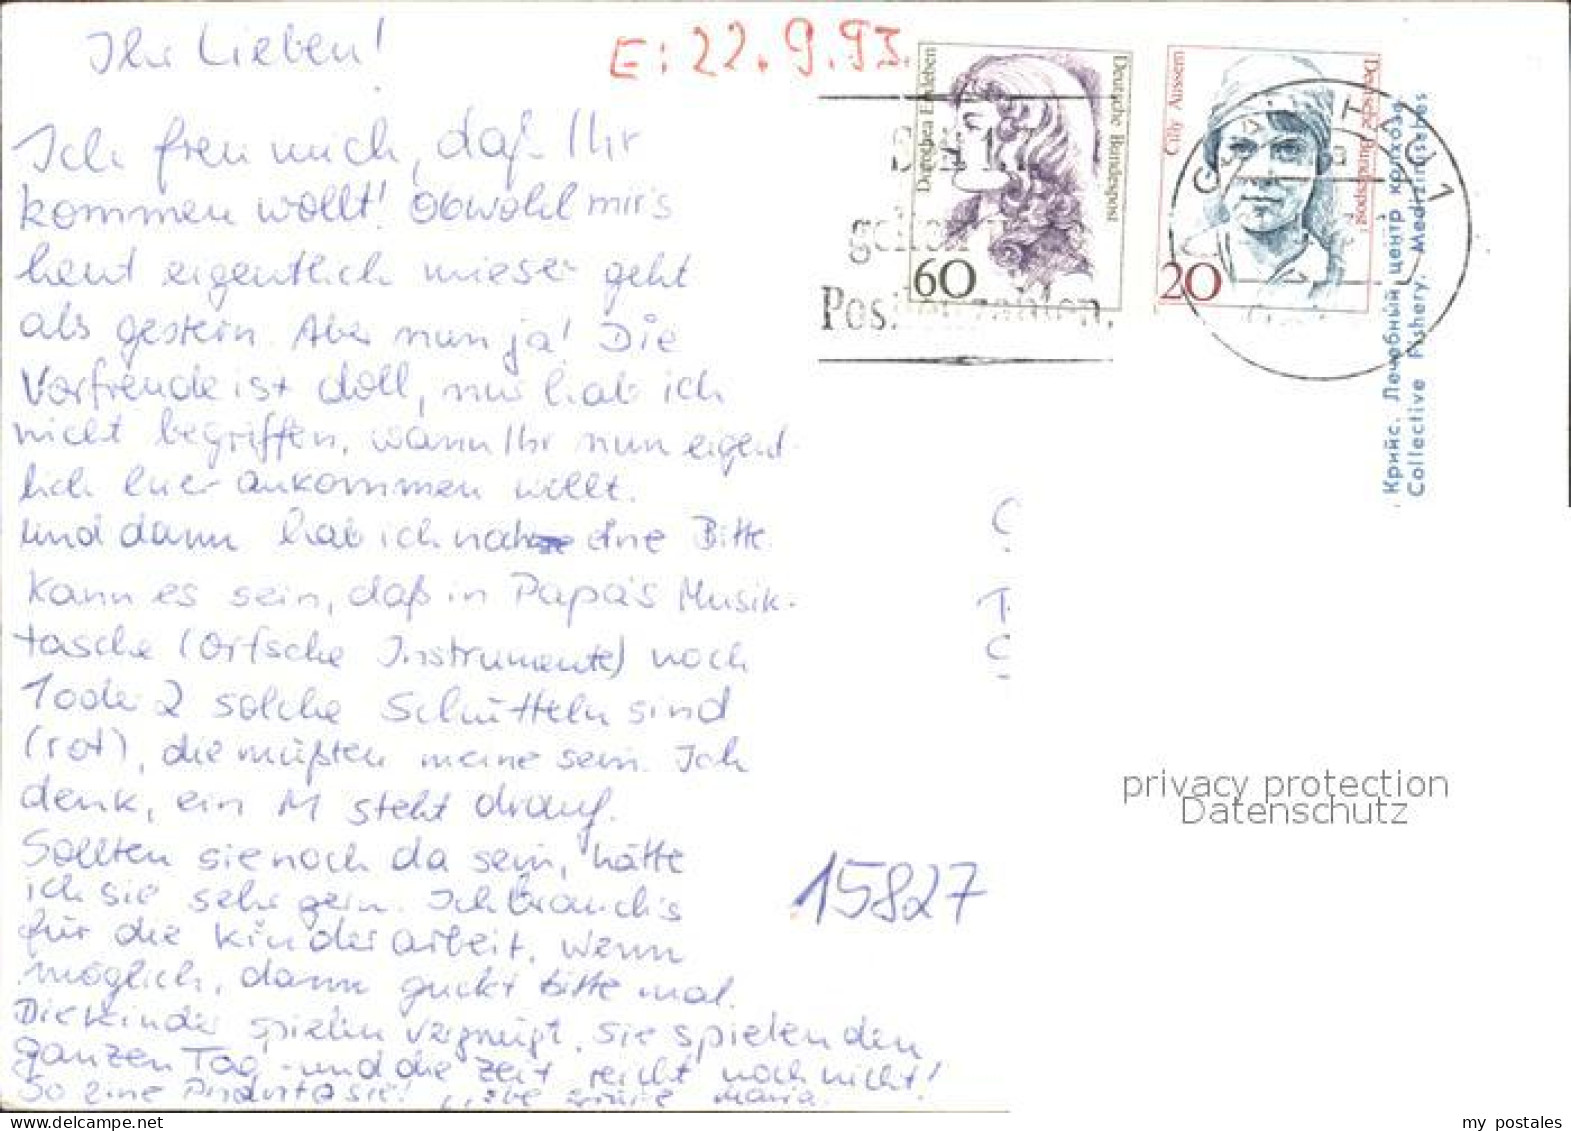 Ihr Lieben!
E: 22.9.93.
Ich freu mich, daß Ihr
kommen wollt! Obwohl mir's
heut eigentlich mieser geht
als gestern. Aber nun ja! Die
Vorfreude ist doll, nur hab ich
nicht begriffen, wann Ihr nun eigent-
lich hier ankommen wollt.
Und dann hab ich noch eine Bitte.
Kann es sein, daß in Papa's Musik-
tasche (Orfsche Instrumente) noch
1 oder 2 solche Schütteln sind
(rot), die müßten meine sein. Ich
denk, ein M steht drauf.
Sollten sie noch da sein, hätte
ich sie sehr gern. Ich brauch's
für die Kinderarbeit. Wenn
möglich, dann guckt bitte mal.
Die Kinder spielen vergnügt. Sie spielen den
ganzen Tag - und die Zeit reicht noch nicht!
So eine Phantasie! Liebe Grüße Maria.
Dorothea Erxleben
Deutsche Bundespost
60
Cilly Aussem
Deutsche Bundespost
20
1
Крийс. Лечебный центр колхоза.
Collective Fishery. Medizinisches
privacy protection
Datenschutz
15827
delcampe.net
my_postales